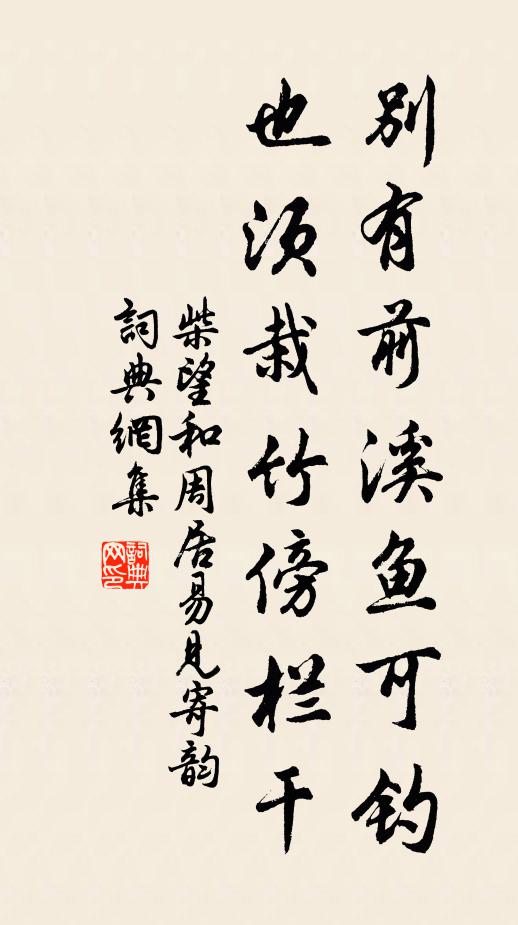 别有前溪鱼可钓
也须栽竹傍栏干
柴望和周居易见寄韵
詞典網集
詞典网印